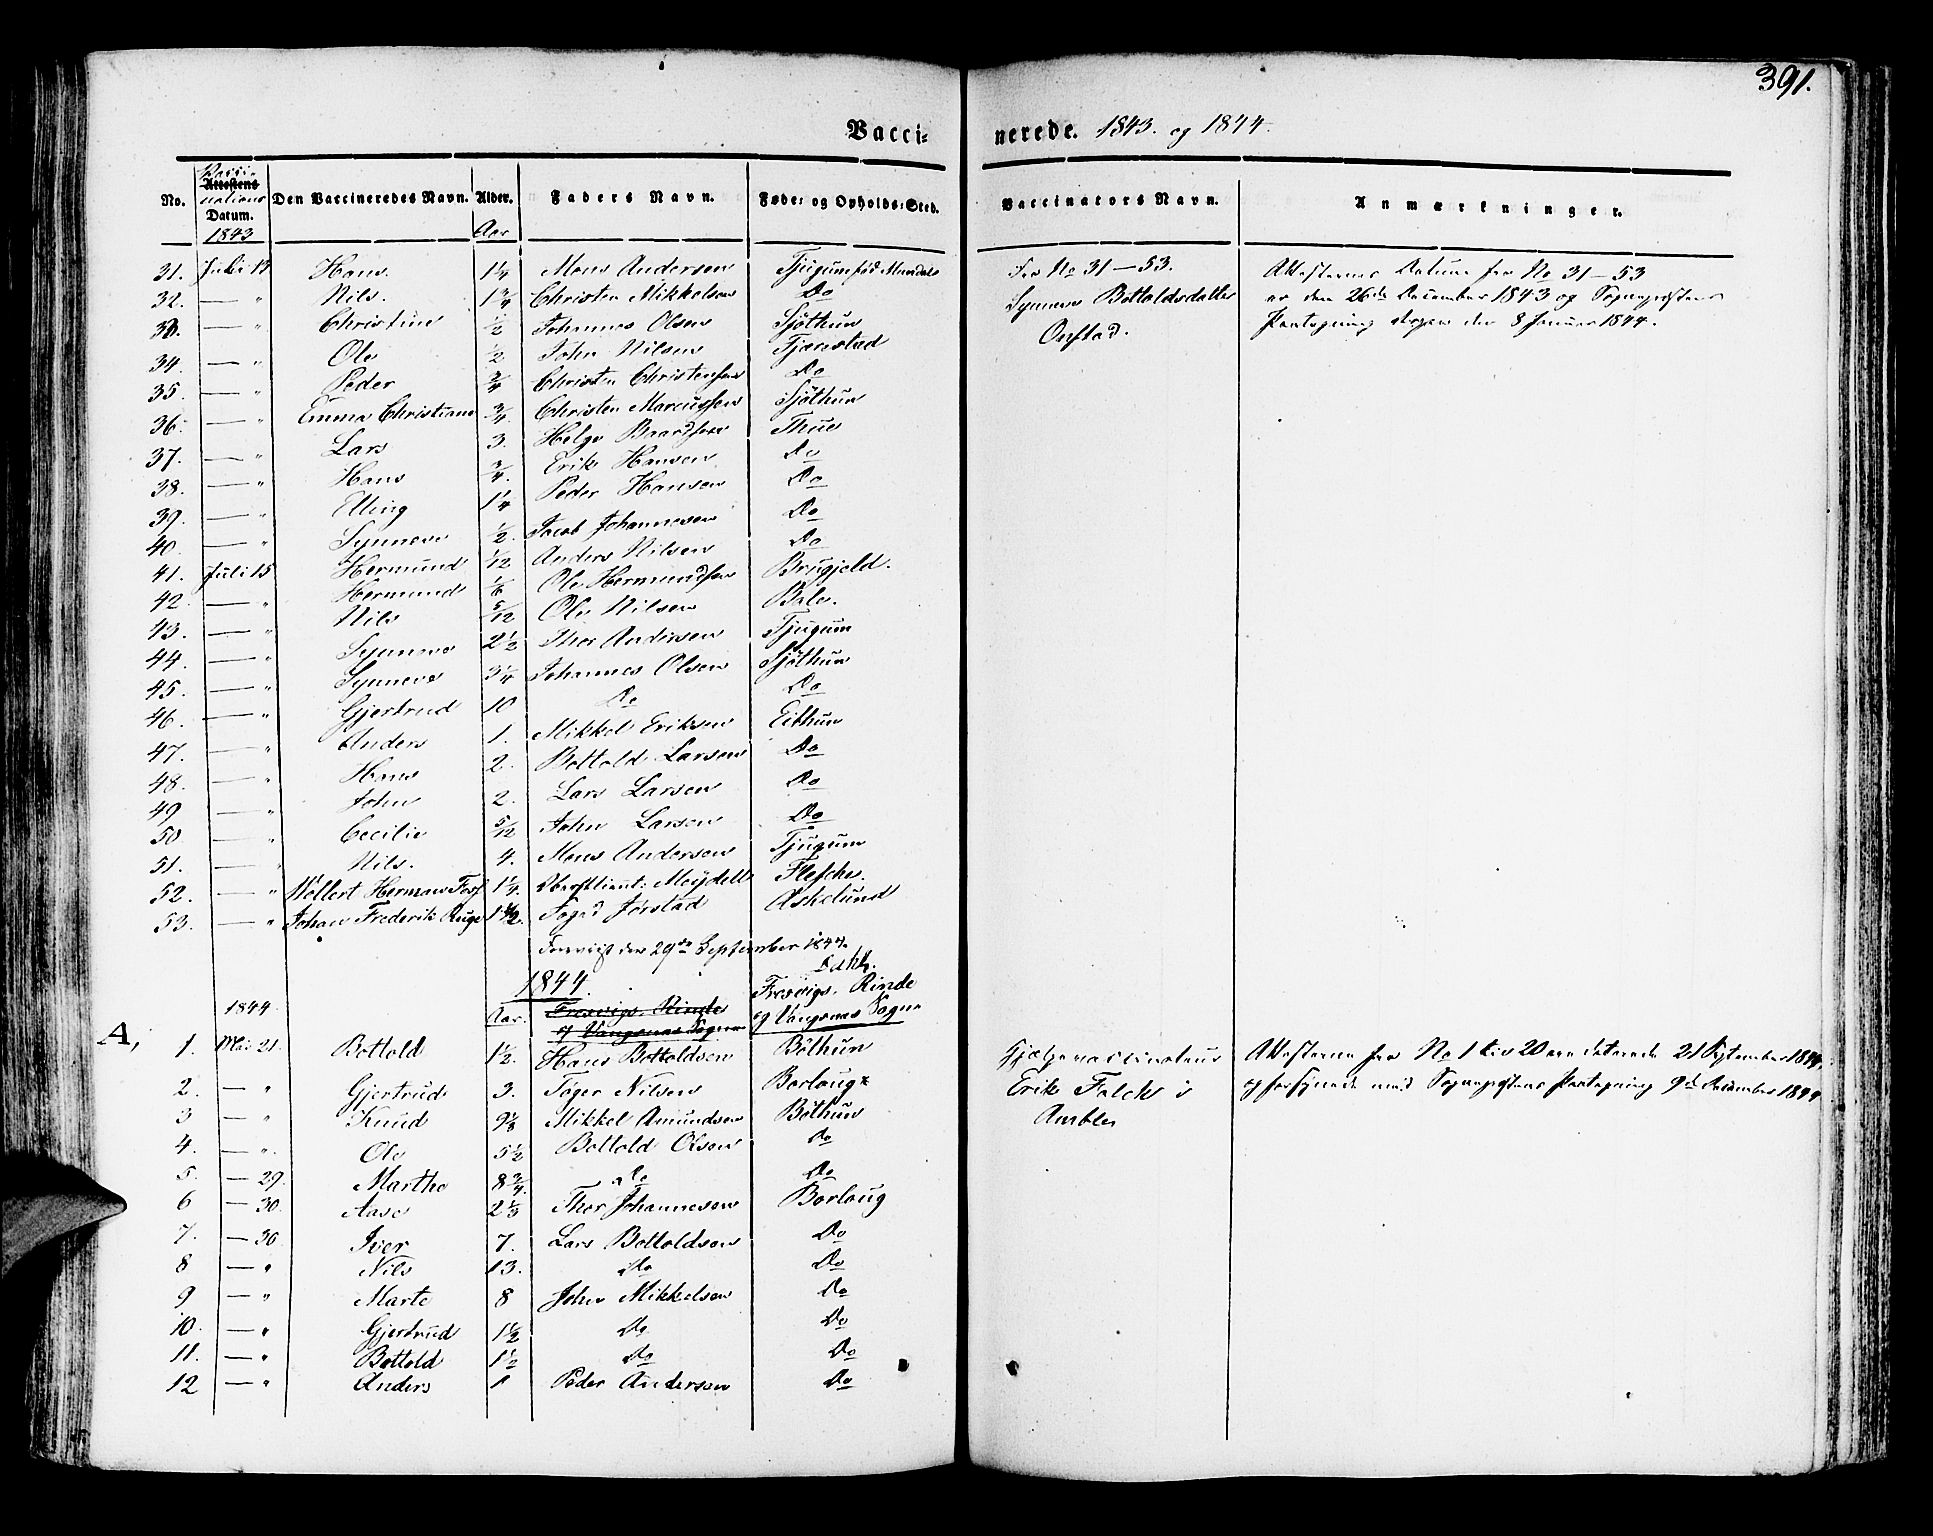 391.
Vacci- nerede. 1843. og 1844.
No. Vaccinations Datum. 1843 Den Vaccineredes Navn. Alder. Aar Faders Navn. Føde- og Opholds-Sted. Vaccinators Navn. Anmærkninger.
31. Juli 14 Hans. 1 1/4 Mons Andersen Tjugum Fra No 31-53. Attesternes Datum fra No 31-53
32. — " Nils. 1 3/4 Christen Mikkelsen Do Synneve Bottoldsdatter er den 26de December 1843 og Sognepræstens
33. — " Christine 1/2 Johannes Olsen Sjöthun Paategning den 8 Januar 1844.
34. — " Ole 1/2 John Nilsen Tjærestad
35. — " Peder 3/4 Christen Christensen Do
36. — " Emma Christiane 3/4 Christen Marcussen Sjöthun
37. — " Lars 3. Helge Baardsen Thue
38. — " Hans 3/4. Erik Hansen Do
39. — " Elling 1 1/4 Peder Hansen Do
40. — " Synneve 1/2. Jacob Johannesen Do
41. Juli 15 Hermund 1/12 Anders Nilsen Do
42. — " Hermund 1/6 Ole Hermundsen Brugjeld.
43. — " Nils 5/12 Ole Nilsen Bale.
44. — " Synneve 2 1/2 Thor Andersen Tjugum
45. — " Synneve 3 1/4 Johannes Olsen Sjöthun
46. — " Gjertrud 10 Do Do
47. — " Anders 1. Mikkel Eriksen Eithun
48. — " Hans 2. Bottold Larsen Do
49 — " John 2. Lars Larsen Do
50 — " Cecilie 5/12 John Larsen Do
51. — " Nils. 4. Mons Andersen Tjugum
52. — " Wollert Herman 1 1/4. Oberstlieut: Meydell Flesche.
53. — " Johan Frederik Ruge 1 1/2. Foged Jörstad Askelund
Foreviist den 29de September 1844.
1844. Fresvigs. Rinde
1844 Aar. Fresvigs. Rinde og Vangsnæs Sogne og Vangsnæs Sogne
A, 1. Mai 21. Bottold 1 1/2. Hans Bottoldsen Böthun Hjælpevaccinateur Attesterne fra No 1 til 20 ere daterede 21 September 1844,
2. — " Gjertrud 3. Töger Nilsen Borloug Erik Falck i og forsynede med Sognepræstens Paategning 9de December 1844
3 — " Knud 9 1/8 Mikkel Amundsen Böthun Amble
4. — " Ole 5 1/2 Bottold Olsen Do
5. — 29. Marthe 8 3/4. Do Do
6 — 30. Aase 2 1/3 Thor Johannesen Borloug
7. — 30 Iver 7. Lars Bottoldsen Do
8 — " Nils 13. Do Do
9 — " Marte 8 John Mikkelsen Do
10. — " Gjertrud 1 1/2 Do Do
11. — " Bottold 1 1/2 Do Do
12 — " Anders 1 Peder Andersen Do